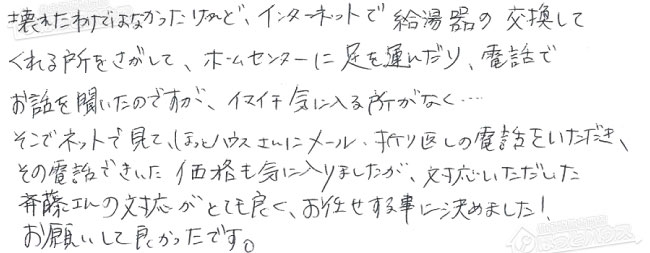 壊れたわけではなかったけれど、インターネットで給湯器の交換して
くれる所をさがして、ホームセンターに足を運んだり、電話で
お話を聞いたのですが、イマイチ気に入る所がなく…
そこでネットで見て、ほっとハウスさんにメール・折り返しの電話をいただき、
その電話できいた価格も気に入りましたが、対応いただいた
斉藤さんの対応がとても良く、お任せする事に決めました!
お願いして良かったです。